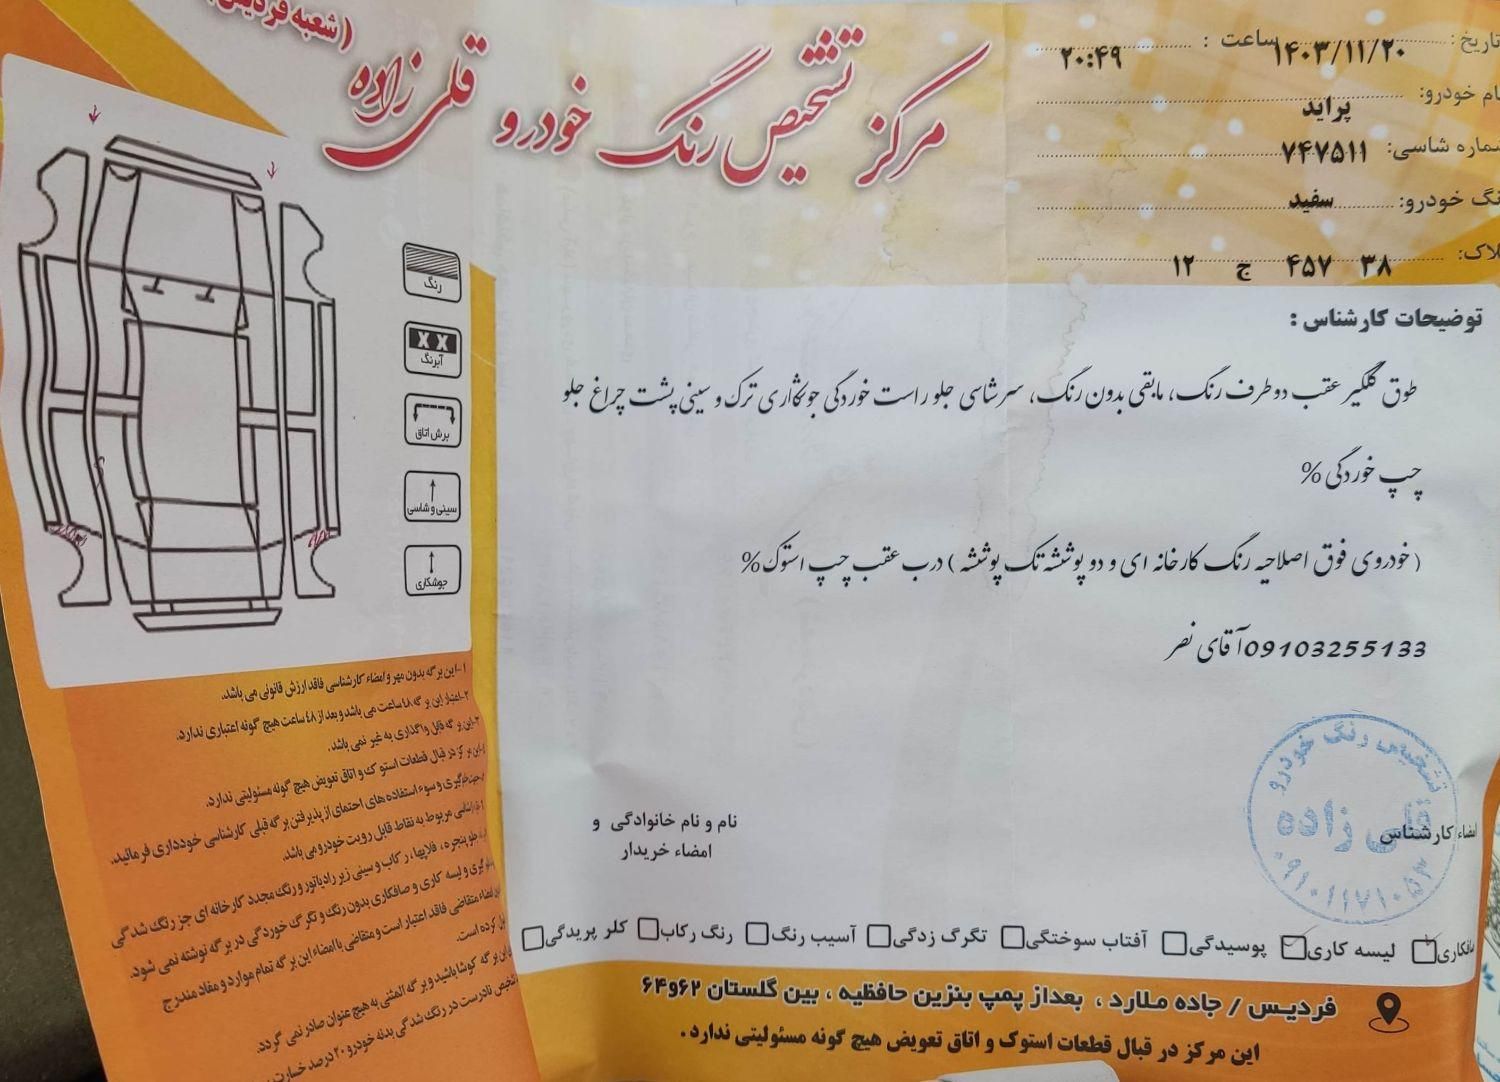 (شعبه فردیس)
مرکز تشخیص رنگ خودرو قلی زاده
تاریخ: ۱۴۰۳/۱۱/۲۰ ساعت: ۲۰:۴۹
نام خودرو: پراید
شماره شاسی: ۷۴۷۵۱۱
رنگ خودرو: سفید
پلاک: ۳۸ ۴۵۷ ج ۱۲
رنگ
X X
آبرنگ
برش اتاق
سینی و شاسی
جوشکاری
توضیحات کارشناس :
طوق گلگیر عقب دو طرف رنگ، مابقی بدون رنگ، سرشاسی جلو راست خوردگی جوشکاری ترک و سینی پشت چراغ جلو
چپ خوردگی %
( خودروی فوق اصلاحیه رنگ کارخانه ای و دو پوششه تک پوششه ) درب عقب چپ استوک %
09103255133 آقای نصر
نام و نام خانوادگی و
امضاء خریدار
امضاء کارشناس
تشخیص رنگ خودرو
قلی زاده
صافکاری لیسه کاری پوسیدگی آفتاب سوختگی تگرگ زدگی آسیب رنگ رنگ رکاب کلر پریدگی
۱-این برگه بدون مهر و امضاء کارشناسی فاقد ارزش قانونی می باشد.
۲-اعتبار این برگه ٤٨ ساعت می باشد و بعد از ٤٨ ساعت هیچ گونه اعتباری ندارد.
۳-این برگه قابل واگذاری به غیر نمی باشد.
این مرکز در قبال قطعات استوک و اتاق تعویض هیچ گونه مسئولیتی ندارد.
جهت جلوگیری و سوء استفاده های احتمالی از پذیرفتن برگه قبلی کارشناسی خودداری فرمائید.
کارشناسی مربوط به نقاط قابل رویت خودرو می باشد.
جلو پنجره ، قلابها ، رکاب و سینی زیر رادیاتور و رنگ مجدد کارخانه ای جز رنگ شدگی
گیری و لیسه کاری و صافکاری بدون رنگ و تگرگ خوردگی در برگه نوشته نمی شود.
امضاء متقاضی فاقد اعتبار است و متقاضی با امضاء این برگه تمام موارد و مفاد مندرج
کرده است.
این برگه کوشا باشید و برگه المثنی به هیچ عنوان صادر نمی گردد.
تشخیص نادرست در رنگ شدگی بدنه خودرو ۲۰ درصد خسارت
فردیس / جاده ملارد ، بعداز پمپ بنزین حافظیه ، بین گلستان ۶۲ و ۶۴
این مرکز در قبال قطعات استوک و اتاق تعویض هیچ گونه مسئولیتی ندارد .